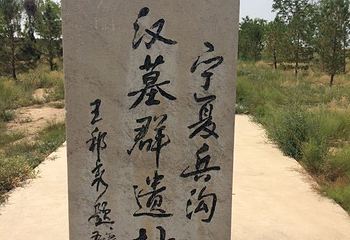 宁夏兵沟
汉墓群遗址
王邦秀题